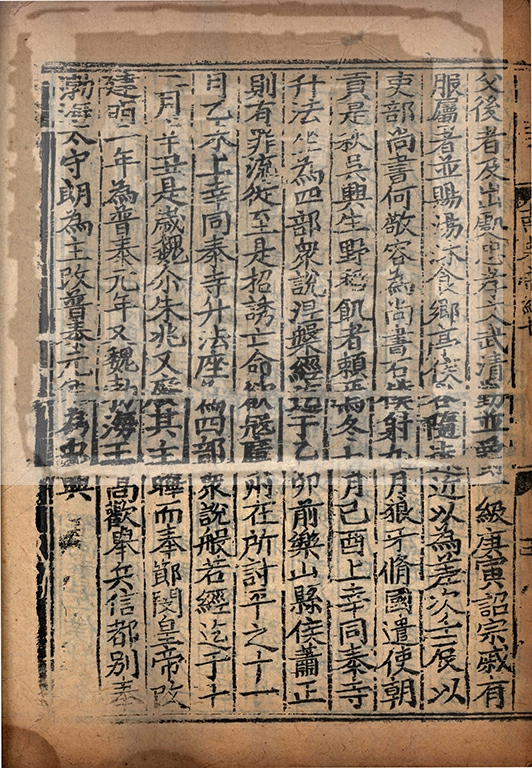 父後者及出處忠孝文武清勤並爵一級庚寅詔宗戚有
服屬者並賜湯沐食鄉亭侯各隨遠近以為差次壬辰以
吏部尚書何敬容為尚書右僕射九月狼牙脩國遣使朝
貢是秋吳興生野稻飢者賴焉冬十月己酉上幸同泰寺
升法坐為四部眾說涅槃經迄于乙卯前樂山縣侯蕭正
則有罪流徙至是招誘亡命欲寇廣州在所討平之十一
月乙未上幸同泰寺升法座為四部眾說般若經迄于十
二月辛丑是歲魏尒朱兆又廢其主曄而奉節閔皇帝改
建明二年為普泰元年又魏勃海王高歡舉兵信都別奉
渤海太守朗為主改普泰元年為中興